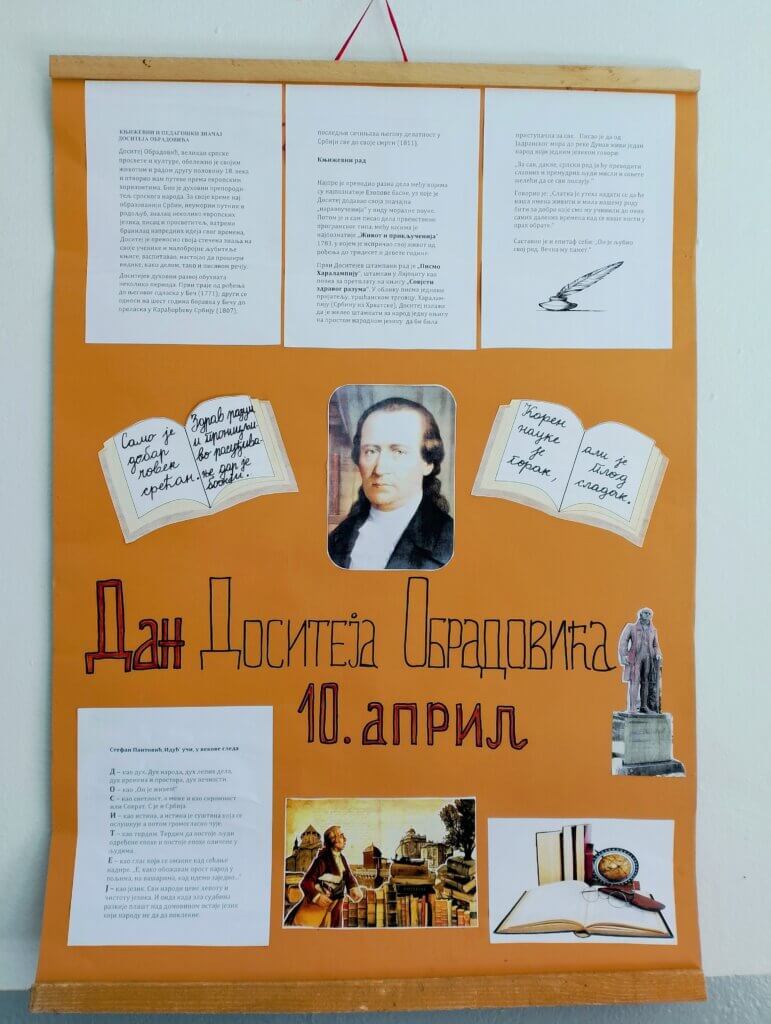 КЊИЖЕВНИ И ПЕДАГОШКИ ЗНАЧАЈ
ДОСИТЕЈА ОБРАДОВИЋА
Доситеј Обрадовић, великан српске
просвете и културе, обележио је својим
животом и радом другу половину 18. века
и отворио нам путеве према европским
хоризонтима. Био је духовни препороди-
тељ српског народа. За своје време нај-
образованији Србин, неуморни путник и
родољуб, зналац неколико европских
језика, писац и просветитељ, ватрени
бранилац напредних идеја свог времена,
Доситеј је преносио своја стечена знања на
своје ученике и малобројне љубитеље
књиге, васпитавао, настојао да прошири
видике, како делом, тако и писаном речју.
Доситејев духовни развој обухвата
неколико периода. Први траје од рођења
до његовог одласка у Беч (1771); други се
односи на шест година боравка у Бечу до
преласка у Карађорђеву Србију (1807);
последњи сачињава његову делатност у
Србији све до своје смрти (1811).
Књижевни рад
Најпре је преводио разна дела међу којима
су најпознатије Езопове басне, уз које је
Доситеј додавао своја значајна
„наравоученија" у виду моралне поуке.
Потом је и сам писао дела првенствено
програмског типа, међу којима је
најпознатије „Живот и прикљученија"
1783. у којем је испричао свој живот од
рођења до тридесет и девете године.
Први Доситејев штампани рад је „Писмо
Харалампију", штампан у Лајпцигу као
позив за претплату на књигу „Совјети
здравог разума". У облику писма једноме
пријатељу, тршћанском трговцу, Харалам-
пију (Србину из Хрватске), Доситеј излаже
да је желео штампати за народ једну књигу
на простом народном језику да би била
приступачна за све. Писао је да од
Јадранског мора до реке Дунав живи један
народ који једним језиком говори:
„За сав, дакле, српски род ја ћу преводити
славних и премудрих људи мисли и совете
желећи да се сви ползују."
Говорио је: „Слатка је утеха надати се да ће
наша имена живити и мила нашему роду
бити за добро које смо му учинили до оних
самих далеких времена кад се наше кости у
прах обрате."
Саставио је и епитаф себи: „Он је љубио
свој род. Вечна му памет".
Само је
добар
човек
срећан.
Здрав разум
и проницљи-
во расуђива-
ње дар је
божји.
Корен
науке
је
горак,
али је
плод
сладак.
Дан Доситеја Обрадовића
10. април
Стефан Пантовић, Идућ' учи, у векове гледа
Д – као дух. Дух народа, дух лепих дела,
дух времена и простора, дух вечности.
О – као „Он је жижеп!"
С – као светлост, а може и као скромност
или Сократ. С је и Србија.
И – као истина, а истина је суштина која се
ослушкује а потом громогласно чује.
Т – као тврдим. Тврдим да постоје људи
одређене епохе и постоје епохе оличене у
људима.
Е – као глас који се омакне кад сећање
надире. „Е, како обожавам прост народ у
пољима, на вашарима, кад идемо заједно..."
Ј – као језик. Сви народи цене лепоту и
чистоту језика. И онда када зла судбина
развије плашт над домовином остаје језик
који народу не да да поклекне.